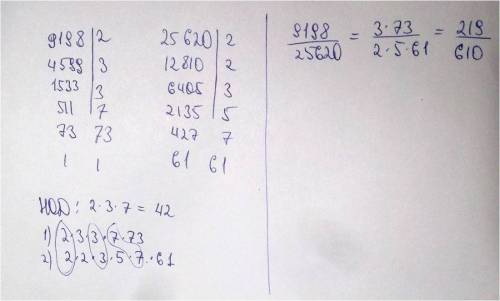 9198 | 2
4599 | 3
1533 | 3
511 | 7
73 73
1 1
25620 | 2
12810 | 2
6405 | 3
2135 | 5
427 7
61 61
НОД: 2·3·7 = 42
1) 2·3·3·7·73
2) 2·2·3·5·7·61
9198/25620 = 3·73/2·5·61 = 219/610